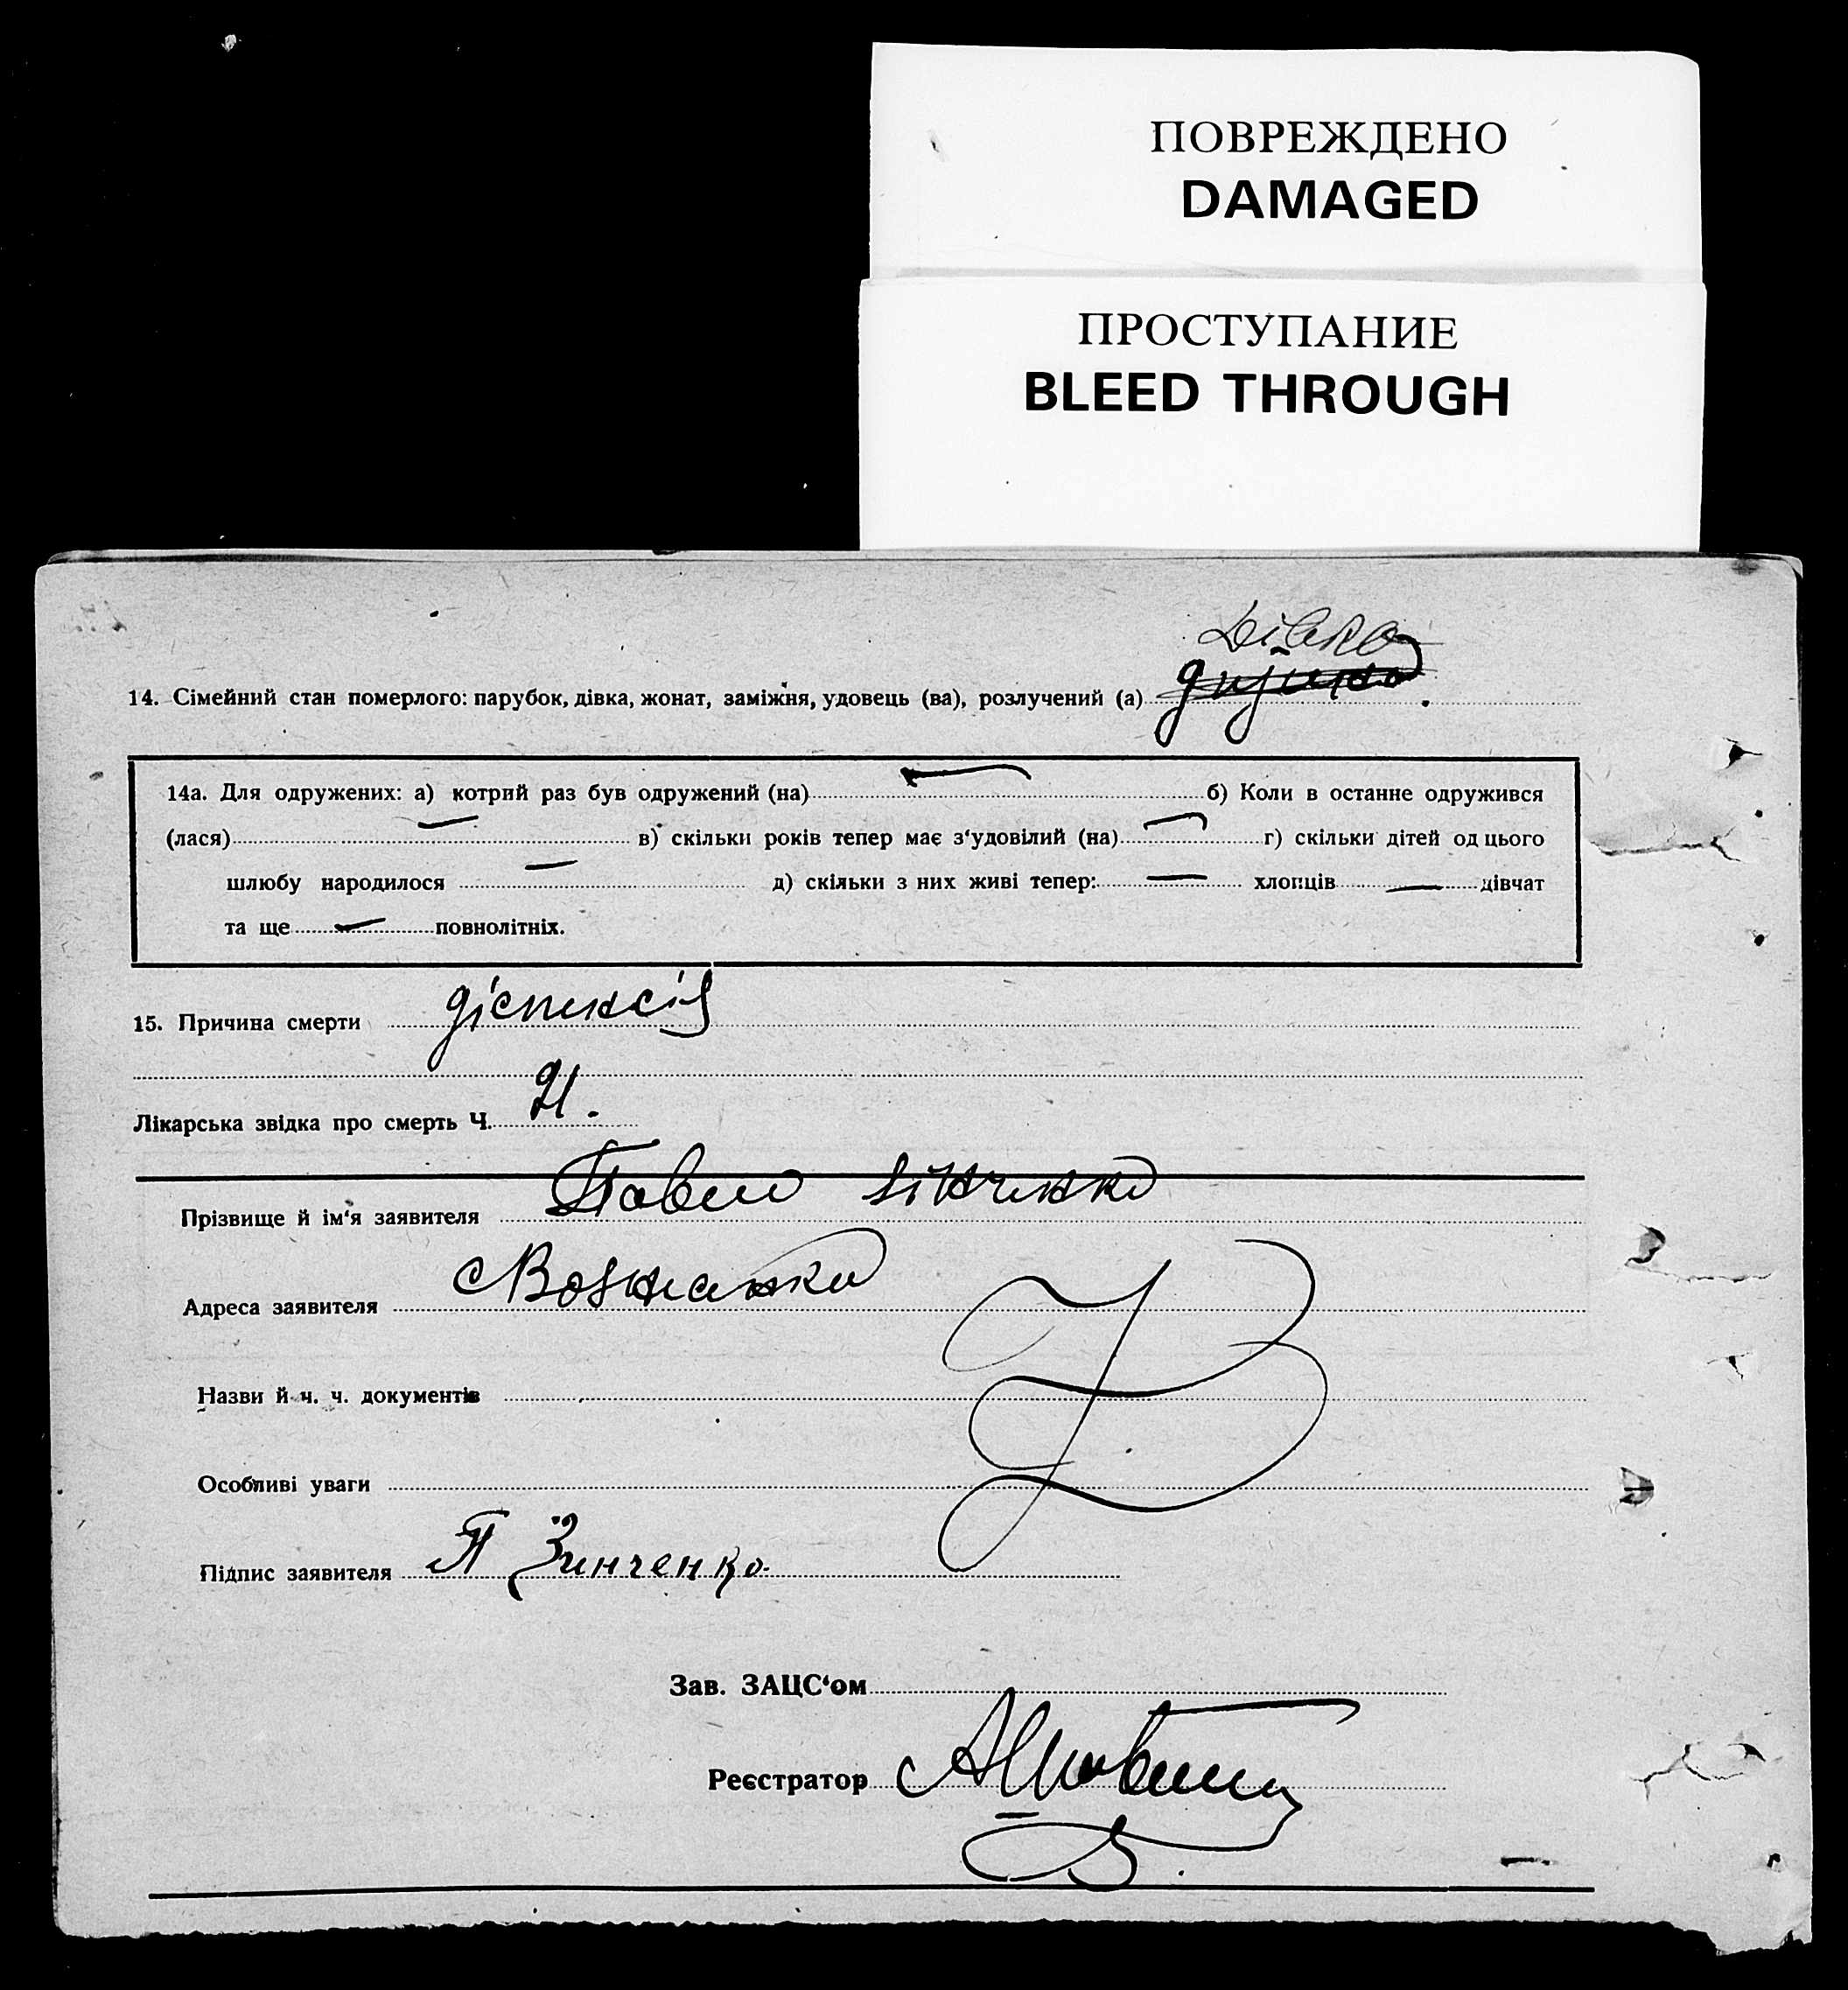 ПОВРЕЖДЕНО
DAMAGED
ПРОСТУПАНИЕ
BLEED THROUGH
Дівка
14. Сімейний стан померлого: парубок, дівка, жонат, заміжня, удовець (ва), розлучений (а)
14а. Для одружених: а) котрий раз був одружений (на) б) Коли в останне одружився
(лася) в) скільки років тепер має з'удовілий (на) г) скільки дітей од цього
шлюбу народилося д) скільки з них живі тепер: хлопців дівчат
та ще повнолітніх.
15. Причина смерти діспексія
Лікарська звідка про смерть Ч.
Прізвище й ім'я заявителя Павло Зінченко
Адреса заявителя
Назви й ч. ч. документів
Особливі уваги
Підпис заявителя П Зинченко
Зав. ЗАЦС'ом
Реєстратор